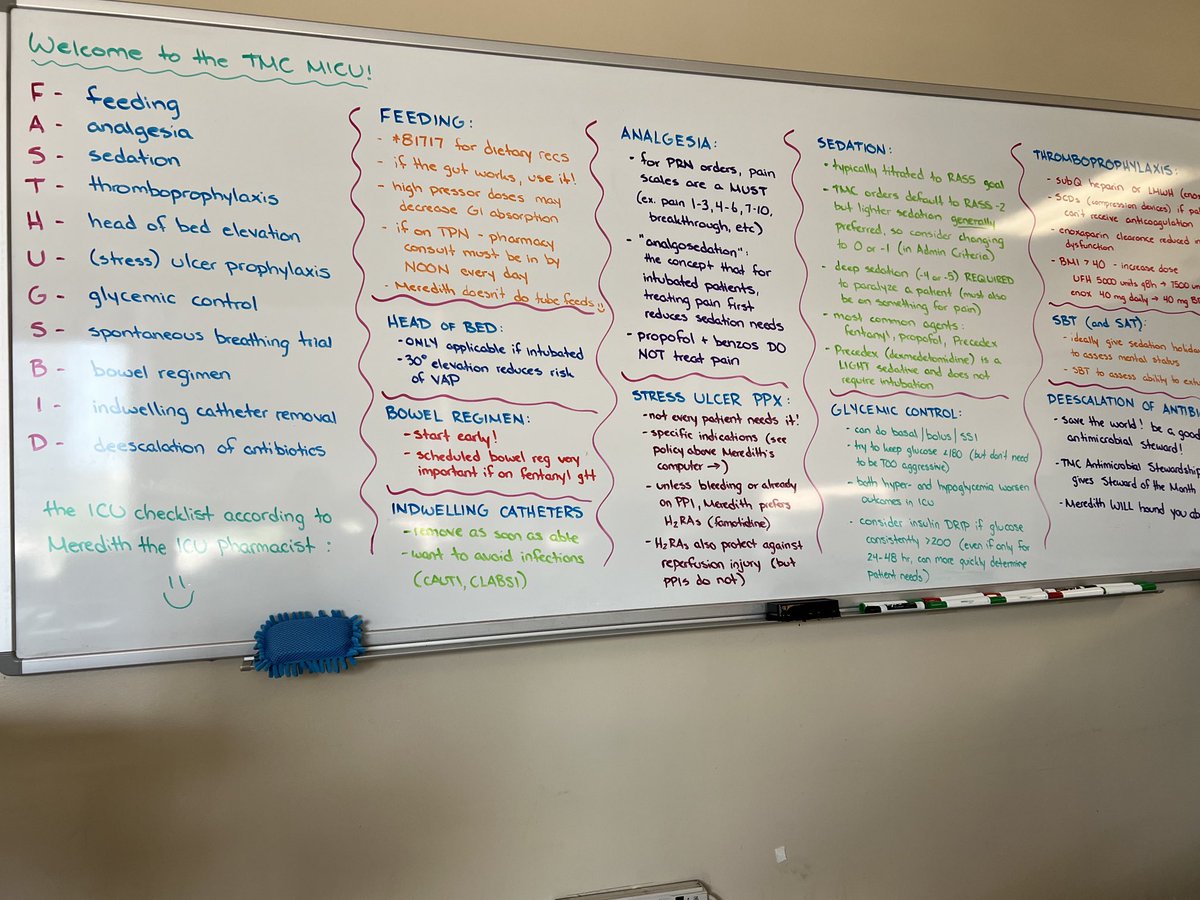 Welcome to the TMC MICU!
F - feeding
A - analgesia
S - sedation
T - thromboprophylaxis
H - head of bed elevation
U - (stress) ulcer prophylaxis
G - glycemic control
S - spontaneous breathing trial
B - bowel regimen
I - indwelling catheter removal
D - deescalation of antibiotics
the ICU checklist according to
Meredith the ICU Pharmacist :
FEEDING:
- *81717 for dietary recs
- if the gut works, use it!
- high pressor doses may
decrease GI absorption
- if on TPN - pharmacy
consult must be in by
NOON every day
- Meredith doesn't do tube feeds
HEAD OF BED:
- ONLY applicable if intubated
- 30° elevation reduces risk
of VAP
BOWEL REGIMEN:
- start early!
- scheduled bowel reg very
important if on fentanyl gtt
INDWELLING CATHETERS
- remove as soon as able
- want to avoid infections
(CAUTI, CLABSI)
ANALGESIA:
• for PRN orders, pain
scales are a MUST
(ex. pain 1-3, 4-6, 7-10,
breakthrough, etc)
• "analgosedation":
the concept that for
intubated patients,
treating pain first
reduces sedation needs
• propofol + benzos DO
NOT treat pain
STRESS ULCER PPX:
- not every patient needs it!
- specific indications (see
policy above Meredith's
computer →)
- unless bleeding or already
on PPI, Meredith prefers
H₂RAs (famotidine)
- H₂RAs also protect against
reperfusion injury (but
PPIs do not)
SEDATION:
• typically titrated to RASS goal
- TMC orders default to RASS -2
but lighter sedation generally
preferred, so consider changing
to 0 or -1 (in Admin Criteria)
- deep sedation (-4 or -5) REQUIRED
to paralyze a patient (must also
be on something for pain)
- most common agents:
fentanyl, propofol, Precedex
- Precedex (dexmedetomidine) is a
LIGHT sedative and does not
require intubation
GLYCEMIC CONTROL:
- can do basal/bolus/SSI
- try to keep glucose <180 (but don't need
to be TOO aggressive)
- both hyper- and hypoglycemia worsen
outcomes in ICU
- consider insulin DRIP if glucose
consistently >200 (even if only for
24-48 hr, can more quickly determine
patient needs)
THROMBOPROPHYLAXIS:
- subQ heparin or LMWH (enox
- SCDs (compression devices) if pa
can't receive anticoagulation
- enoxaparin clearance reduced in
dysfunction
- BMI > 40 - increase dose
UFH 5000 units q8h → 7500 un
enox 40 mg daily → 40 mg B
SBT (and SAT):
- ideally give sedation holida
to assess mental status
- SBT to assess ability to ext
DEESCALATION OF ANTIBI
- save the world! be a good
antimicrobial steward!
- TMC Antimicrobial Stewardship
gives Steward of the Month
- Meredith WILL hound you ab